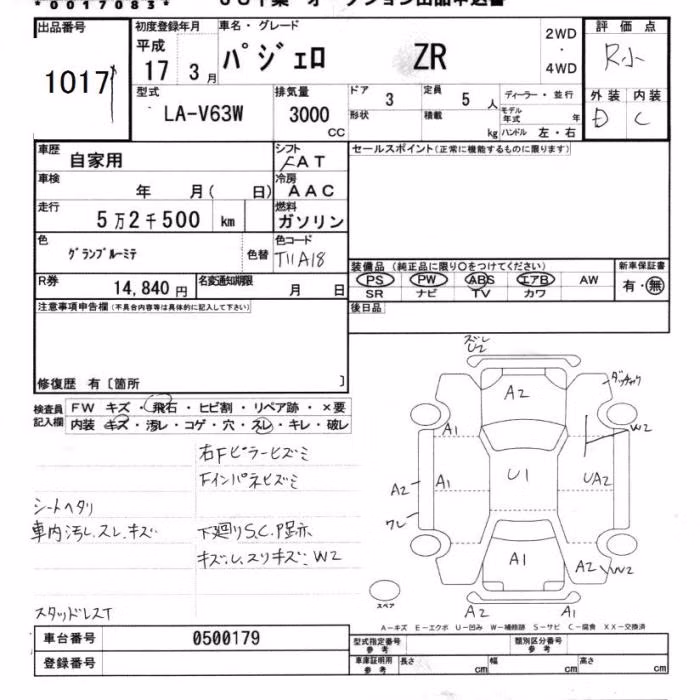 *0017083*
出品番号
1017
初度登録年月
平成
17 3月
車名・グレード
パジェロ ZR
2WD
・
4WD
評価点
R小
型式
LA-V63W
排気量
3000
cc
ドア
3
定員
5 人
形状
積載
kg
ディーラー・並行
モデル年式 年
ハンドル 左・右
外装 内装
D C
車歴
自家用
シフト
FAT
車検
年 月( 日)
冷房
AAC
走行
5万2千500 km
燃料
ガソリン
色
グランブルーミテ
色替
色コード
T11A18
R券
14,840円
名変通知期限
月 日
セールスポイント(正常に機能するものに限ります)
装備品(純正品に限り〇をつけてください)
PS PW ABS エアB AW
SR ナビ TV カワ
新車保証書
有・無
後日品
注意事項申告欄(不具合内容等は具体的に記入して下さい)
修復歴 有〔箇所 〕
検査員記入欄
FW キズ・飛石・ヒビ割・リペア跡・×要
内装 キズ・汚レ・コゲ・穴・スレ・キレ・破レ
右Fピラーヒズミ
Fインパネヒズミ
シートヘタリ
車内汚レ.スレ.キズ
下廻りS.C.P跡
スタッドレスT
ズレ
U2
A2
A1
W2
A2
A1
U1
UA2
ワレ
A1
A2
W2
スペア
A2
A1
A-キズ E-エクボ U-凹み W-補修跡 S-サビ C-腐食 XX-交換済
車台番号
0500179
登録番号
型式指定番号
参考
類別区分番号
参考
車庫証明用
参考
長さ cm
幅 cm
高さ cm